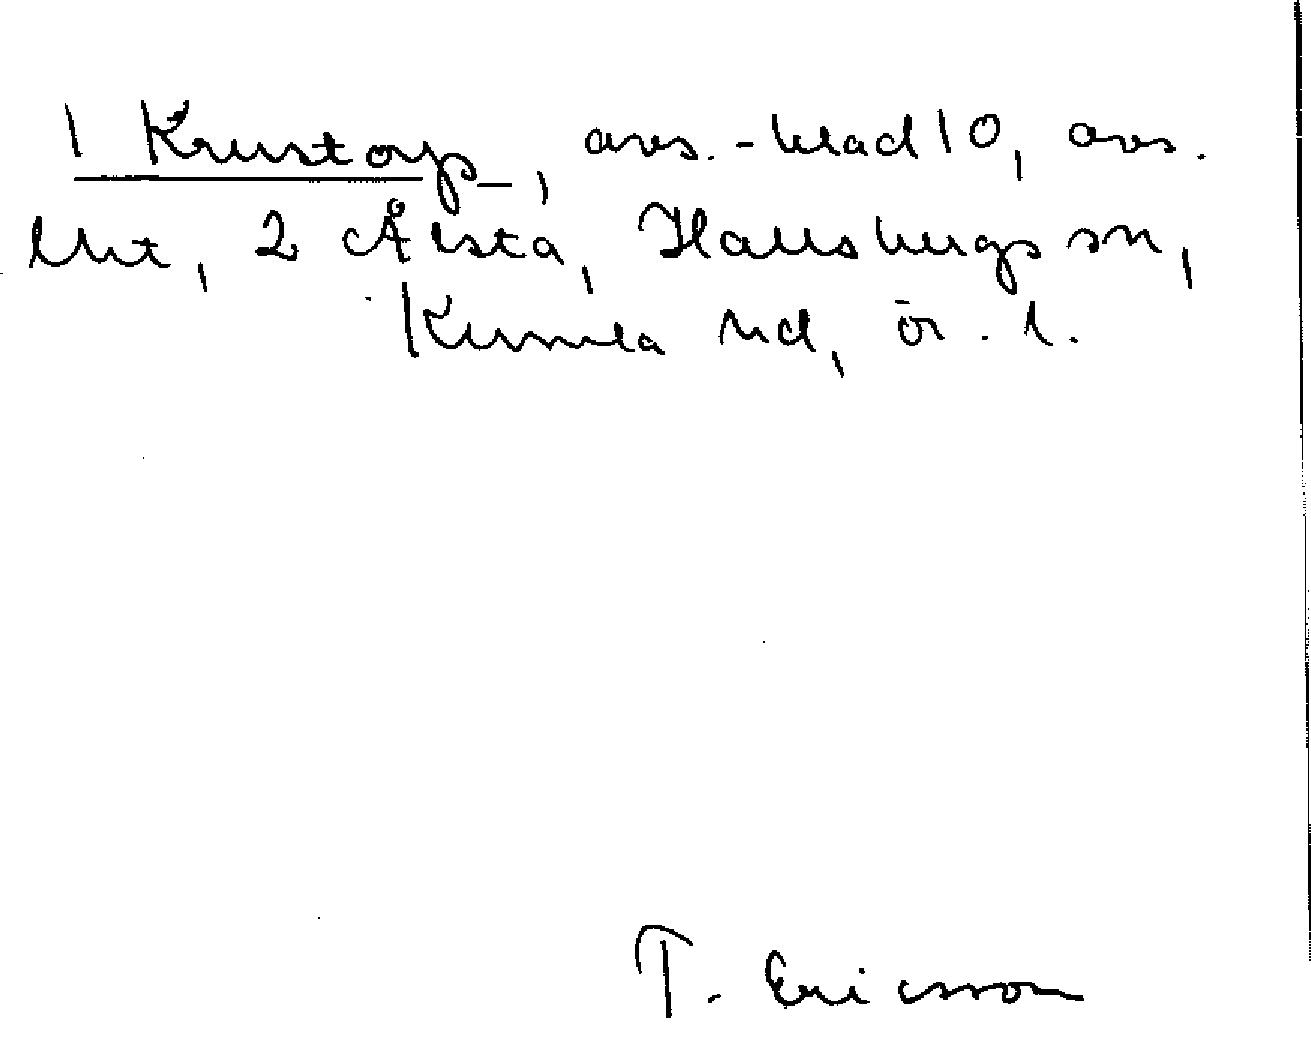 1 Krustorp_, avs.-blad 10, avs.
lht, 2 Ålsta, Hallsbergs sn,
Kumla hd, ör. l.
T. Ericsson